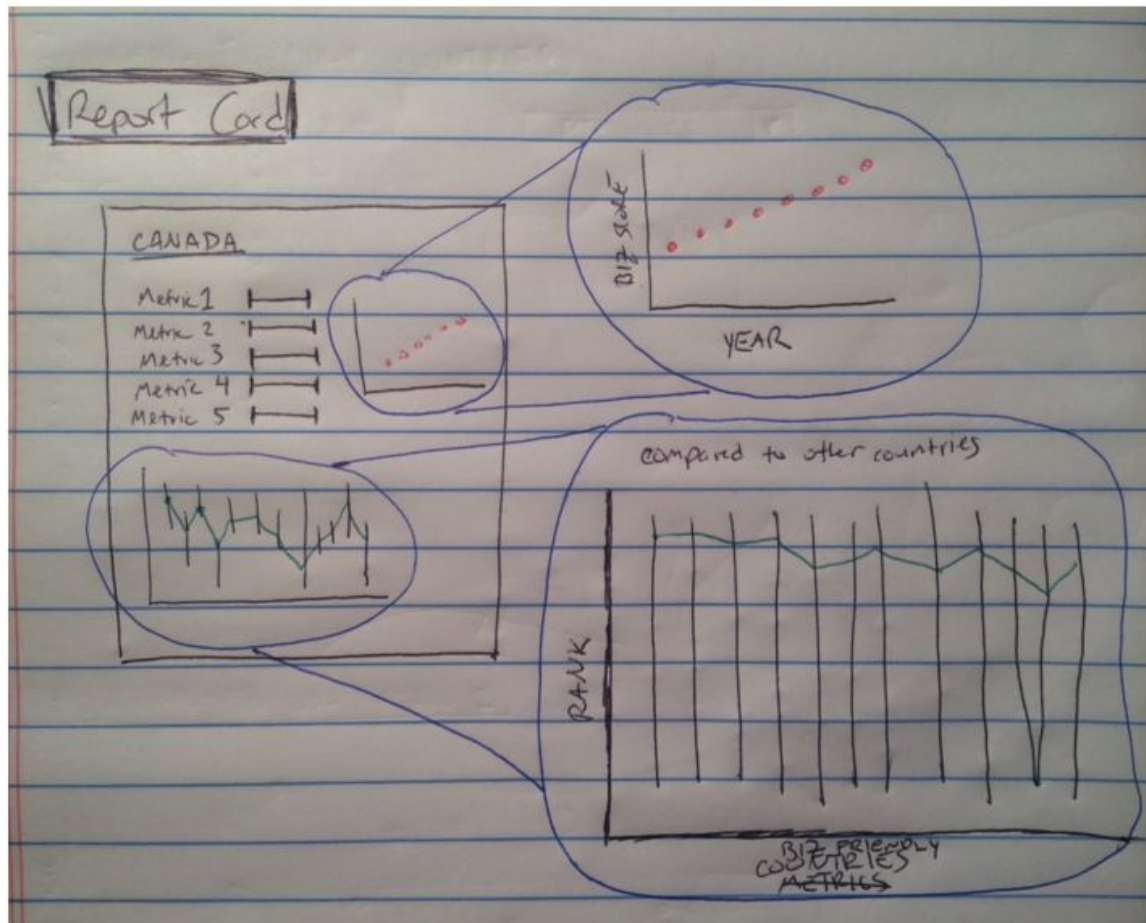 Report Card
CANADA
Metric 1
Metric 2
Metric 3
Metric 4
Metric 5
BIZ SCORE
YEAR
compared to other countries
RANK
BIZ FRIENDLY
COUNTRIES
METRICS